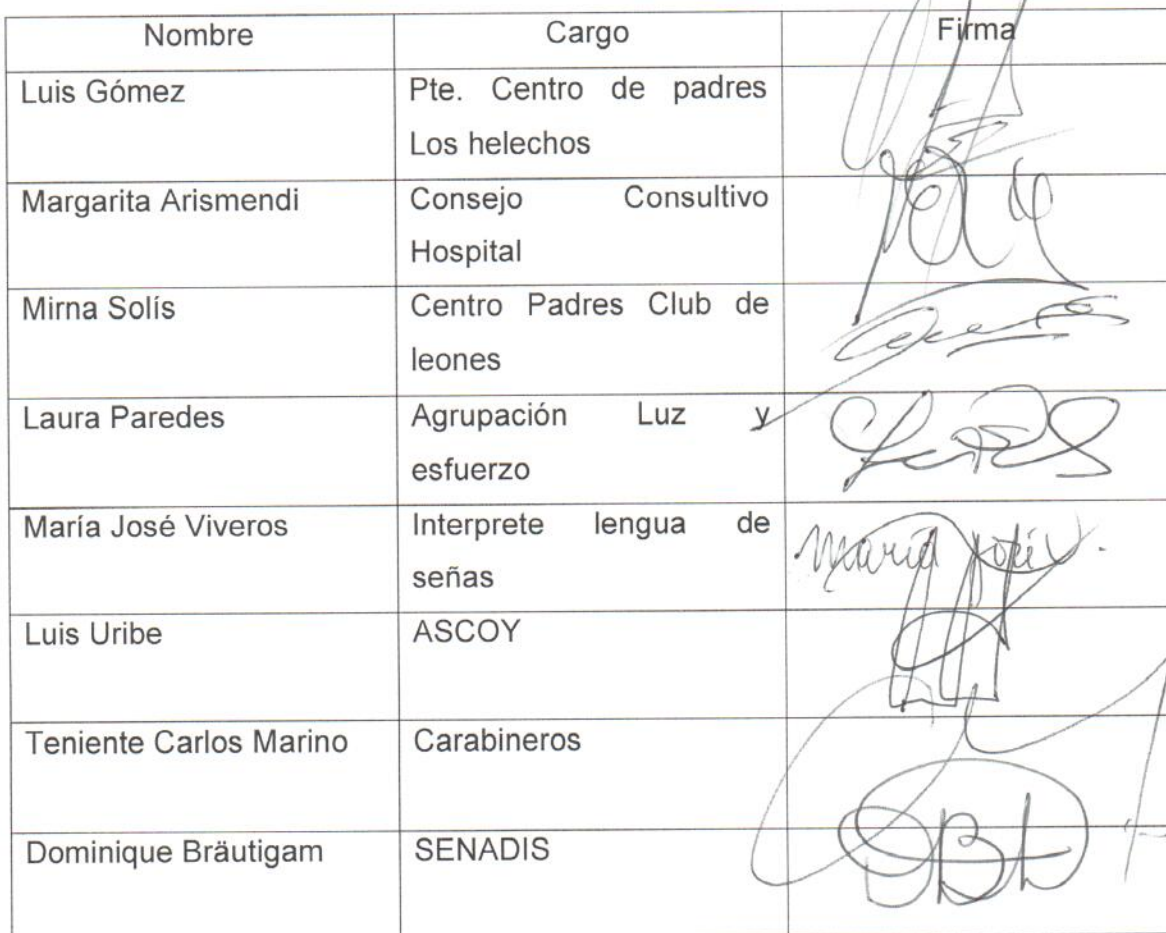 Nombre Cargo Firma
Luis Gómez Pte. Centro de padres
Los helechos
Margarita Arismendi Consejo Consultivo
Hospital
Mirna Solís Centro Padres Club de
leones
Laura Paredes Agrupación Luz y
esfuerzo
María José Viveros Interprete lengua de
señas
María José V.
Luis Uribe ASCOY
Teniente Carlos Marino Carabineros
Dominique Bräutigam SENADIS